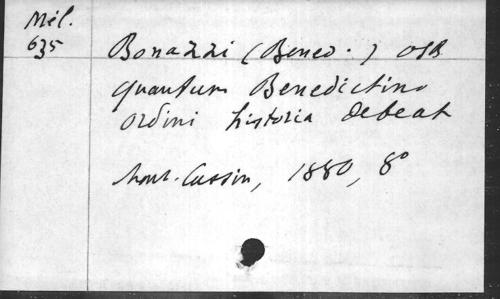 Mél.
635
Bonazzi (Bened.) OSB
quantum Benedictino
ordini historia debeat
Mont-Cassin, 1880, 8°